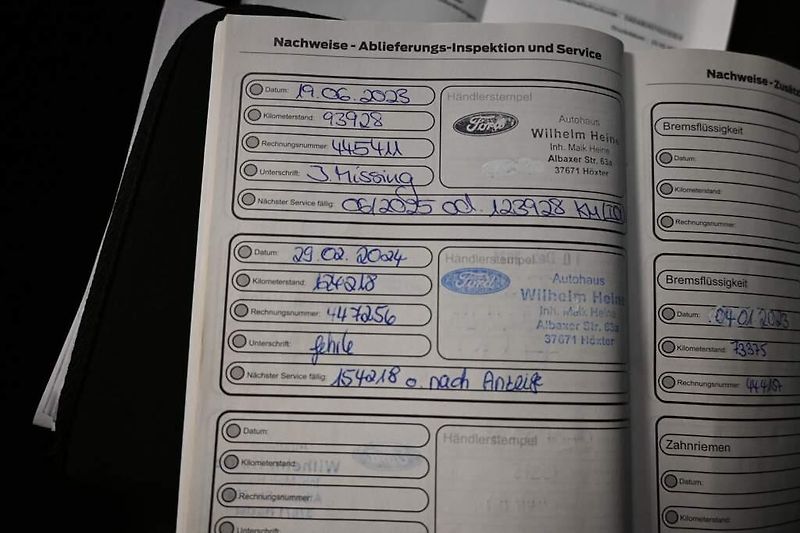 Nachweise - Ablieferungs-Inspektion und Service
Datum: 19.06.2023
Kilometerstand: 93928
Rechnungsnummer: 445411
Unterschrift: J. Missing
Nächster Service fällig: 06/2025 od. 123928 KM
Händlerstempel
Ford
Autohaus
Wilhelm Heine
Inh. Maik Heine
Albaxer Str. 63a
37671 Höxter
Datum: 29.02.2024
Kilometerstand: 124218
Rechnungsnummer: 447256
Unterschrift:
Nächster Service fällig: 154218 o. nach Anzeige
Händlerstempel
Ford
Autohaus
Wilhelm Hein
Inh. Maik Heine
Albaxer Str. 63a
37671 Höxter
Datum:
Kilometerstand:
Rechnungsnummer:
Unterschrift:
Händlerstempel
Nachweise - Zusätz
Bremsflüssigkeit
Datum:
Kilometerstand:
Rechnungsnummer:
Bremsflüssigkeit
Datum: 04.01.2023
Kilometerstand: 73375
Rechnungsnummer: 444157
Zahnriemen
Datum:
Kilometerstand: